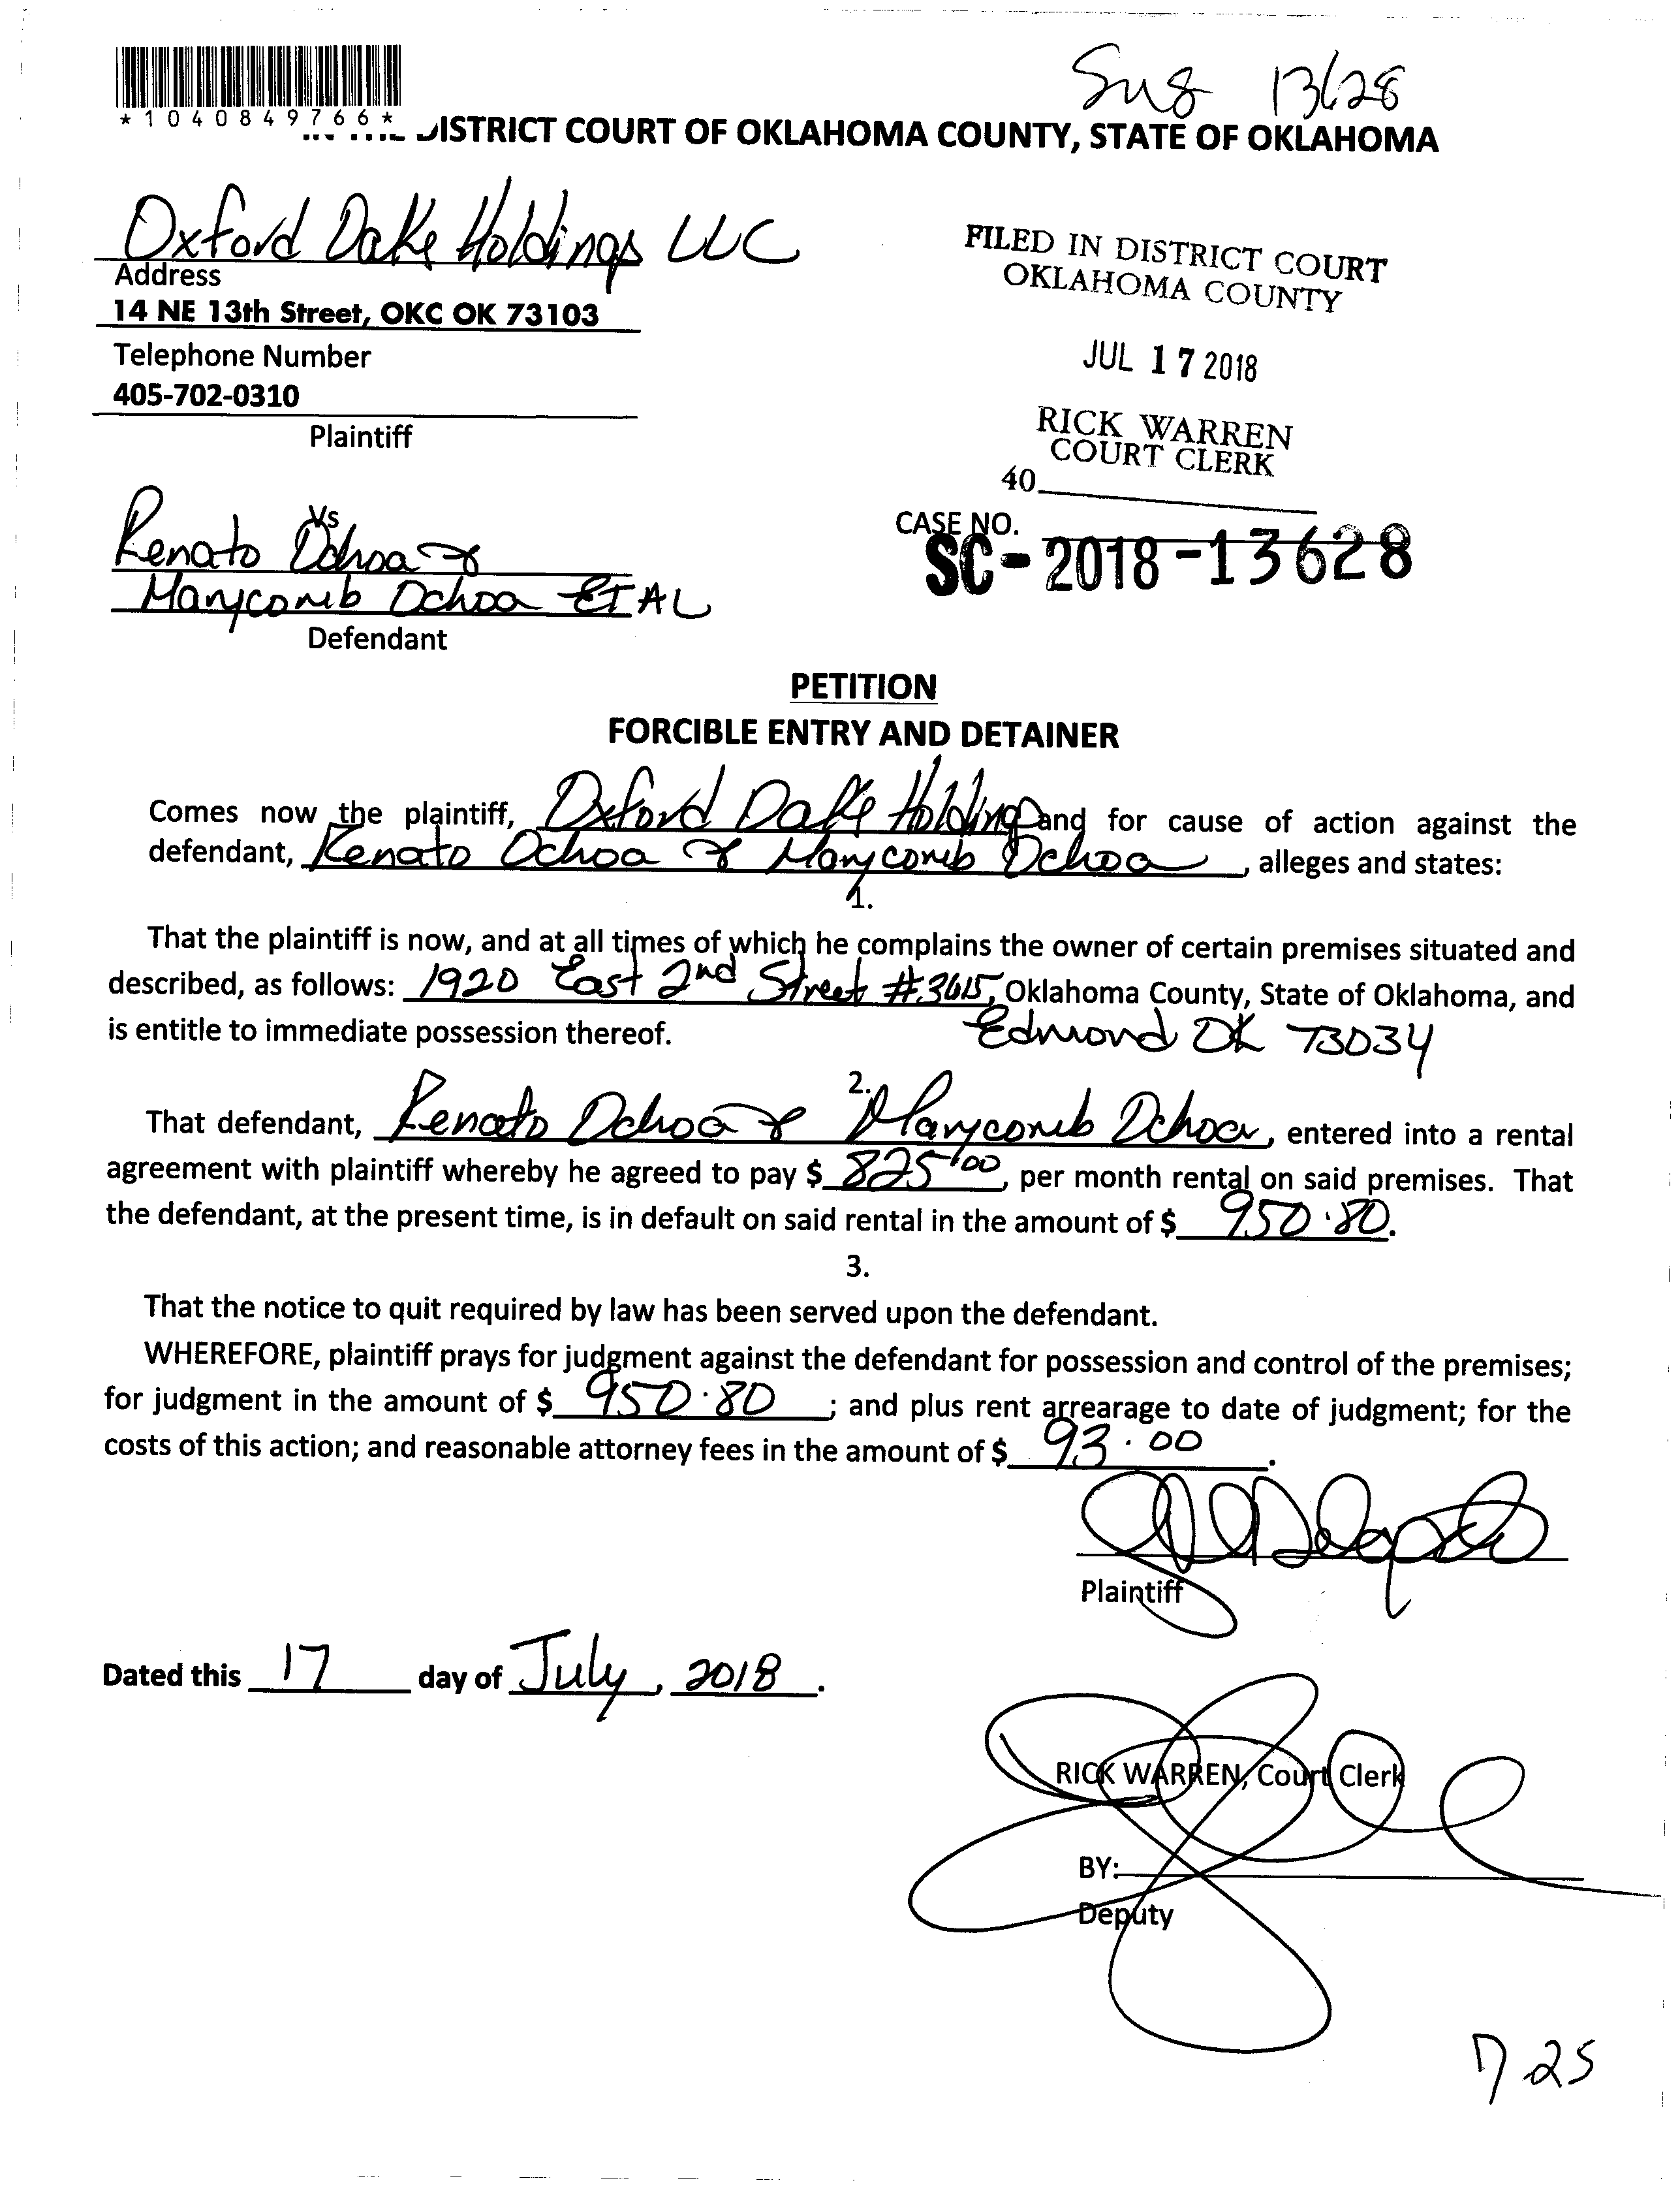 Sm8 13628
*1040849766*
DISTRICT COURT OF OKLAHOMA COUNTY, STATE OF OKLAHOMA
Oxford Oake Holdings LLC
Address
14 NE 13th Street, OKC OK 73103
Telephone Number
405-702-0310
Plaintiff
FILED IN DISTRICT COURT
OKLAHOMA COUNTY
JUL 17 2018
RICK WARREN
COURT CLERK
40
Vs
Renato Ochoa &
Marycomb Ochoa ET AL
Defendant
CASE NO.
SC-2018-13628
PETITION
FORCIBLE ENTRY AND DETAINER
Comes now the plaintiff, Oxford Oake Holdings and for cause of action against the
defendant, Renato Ochoa & Marycomb Ochoa, alleges and states:
1.
That the plaintiff is now, and at all times of which he complains the owner of certain premises situated and
described, as follows: 1920 East 2nd Street #3615, Oklahoma County, State of Oklahoma, and
is entitle to immediate possession thereof. Edmond OK 73034
2.
That defendant, Renato Ochoa & Marycomb Ochoa, entered into a rental
agreement with plaintiff whereby he agreed to pay $ 825.00, per month rental on said premises. That
the defendant, at the present time, is in default on said rental in the amount of $ 950.80.
3.
That the notice to quit required by law has been served upon the defendant.
WHEREFORE, plaintiff prays for judgment against the defendant for possession and control of the premises;
for judgment in the amount of $ 950.80; and plus rent arrearage to date of judgment; for the
costs of this action; and reasonable attorney fees in the amount of $ 93.00.
Plaintiff
Dated this 17 day of July, 2018.
RICK WARREN, Court Clerk
BY:
Deputy
7 25